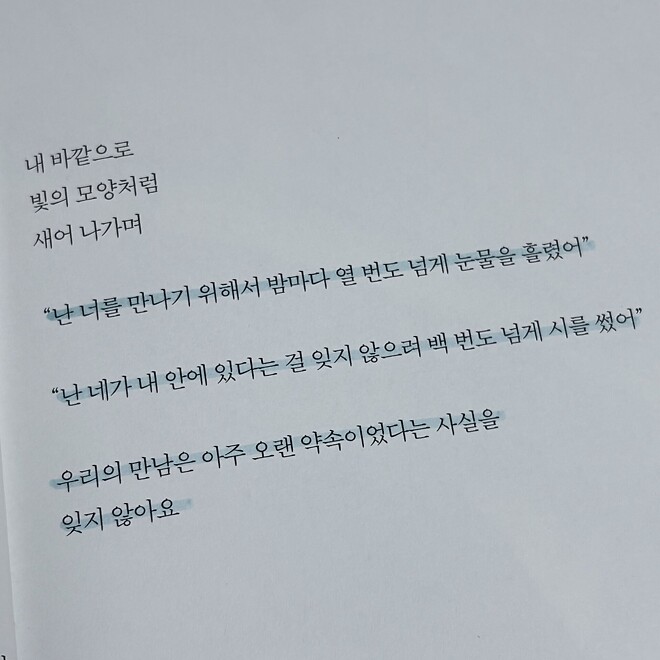 내 바깥으로
빛의 모양처럼
새어 나가며
“난 너를 만나기 위해서 밤마다 열 번도 넘게 눈물을 흘렸어”
“난 네가 내 안에 있다는 걸 잊지 않으려 백 번도 넘게 시를 썼어”
우리의 만남은 아주 오랜 약속이었다는 사실을
잊지 않아요